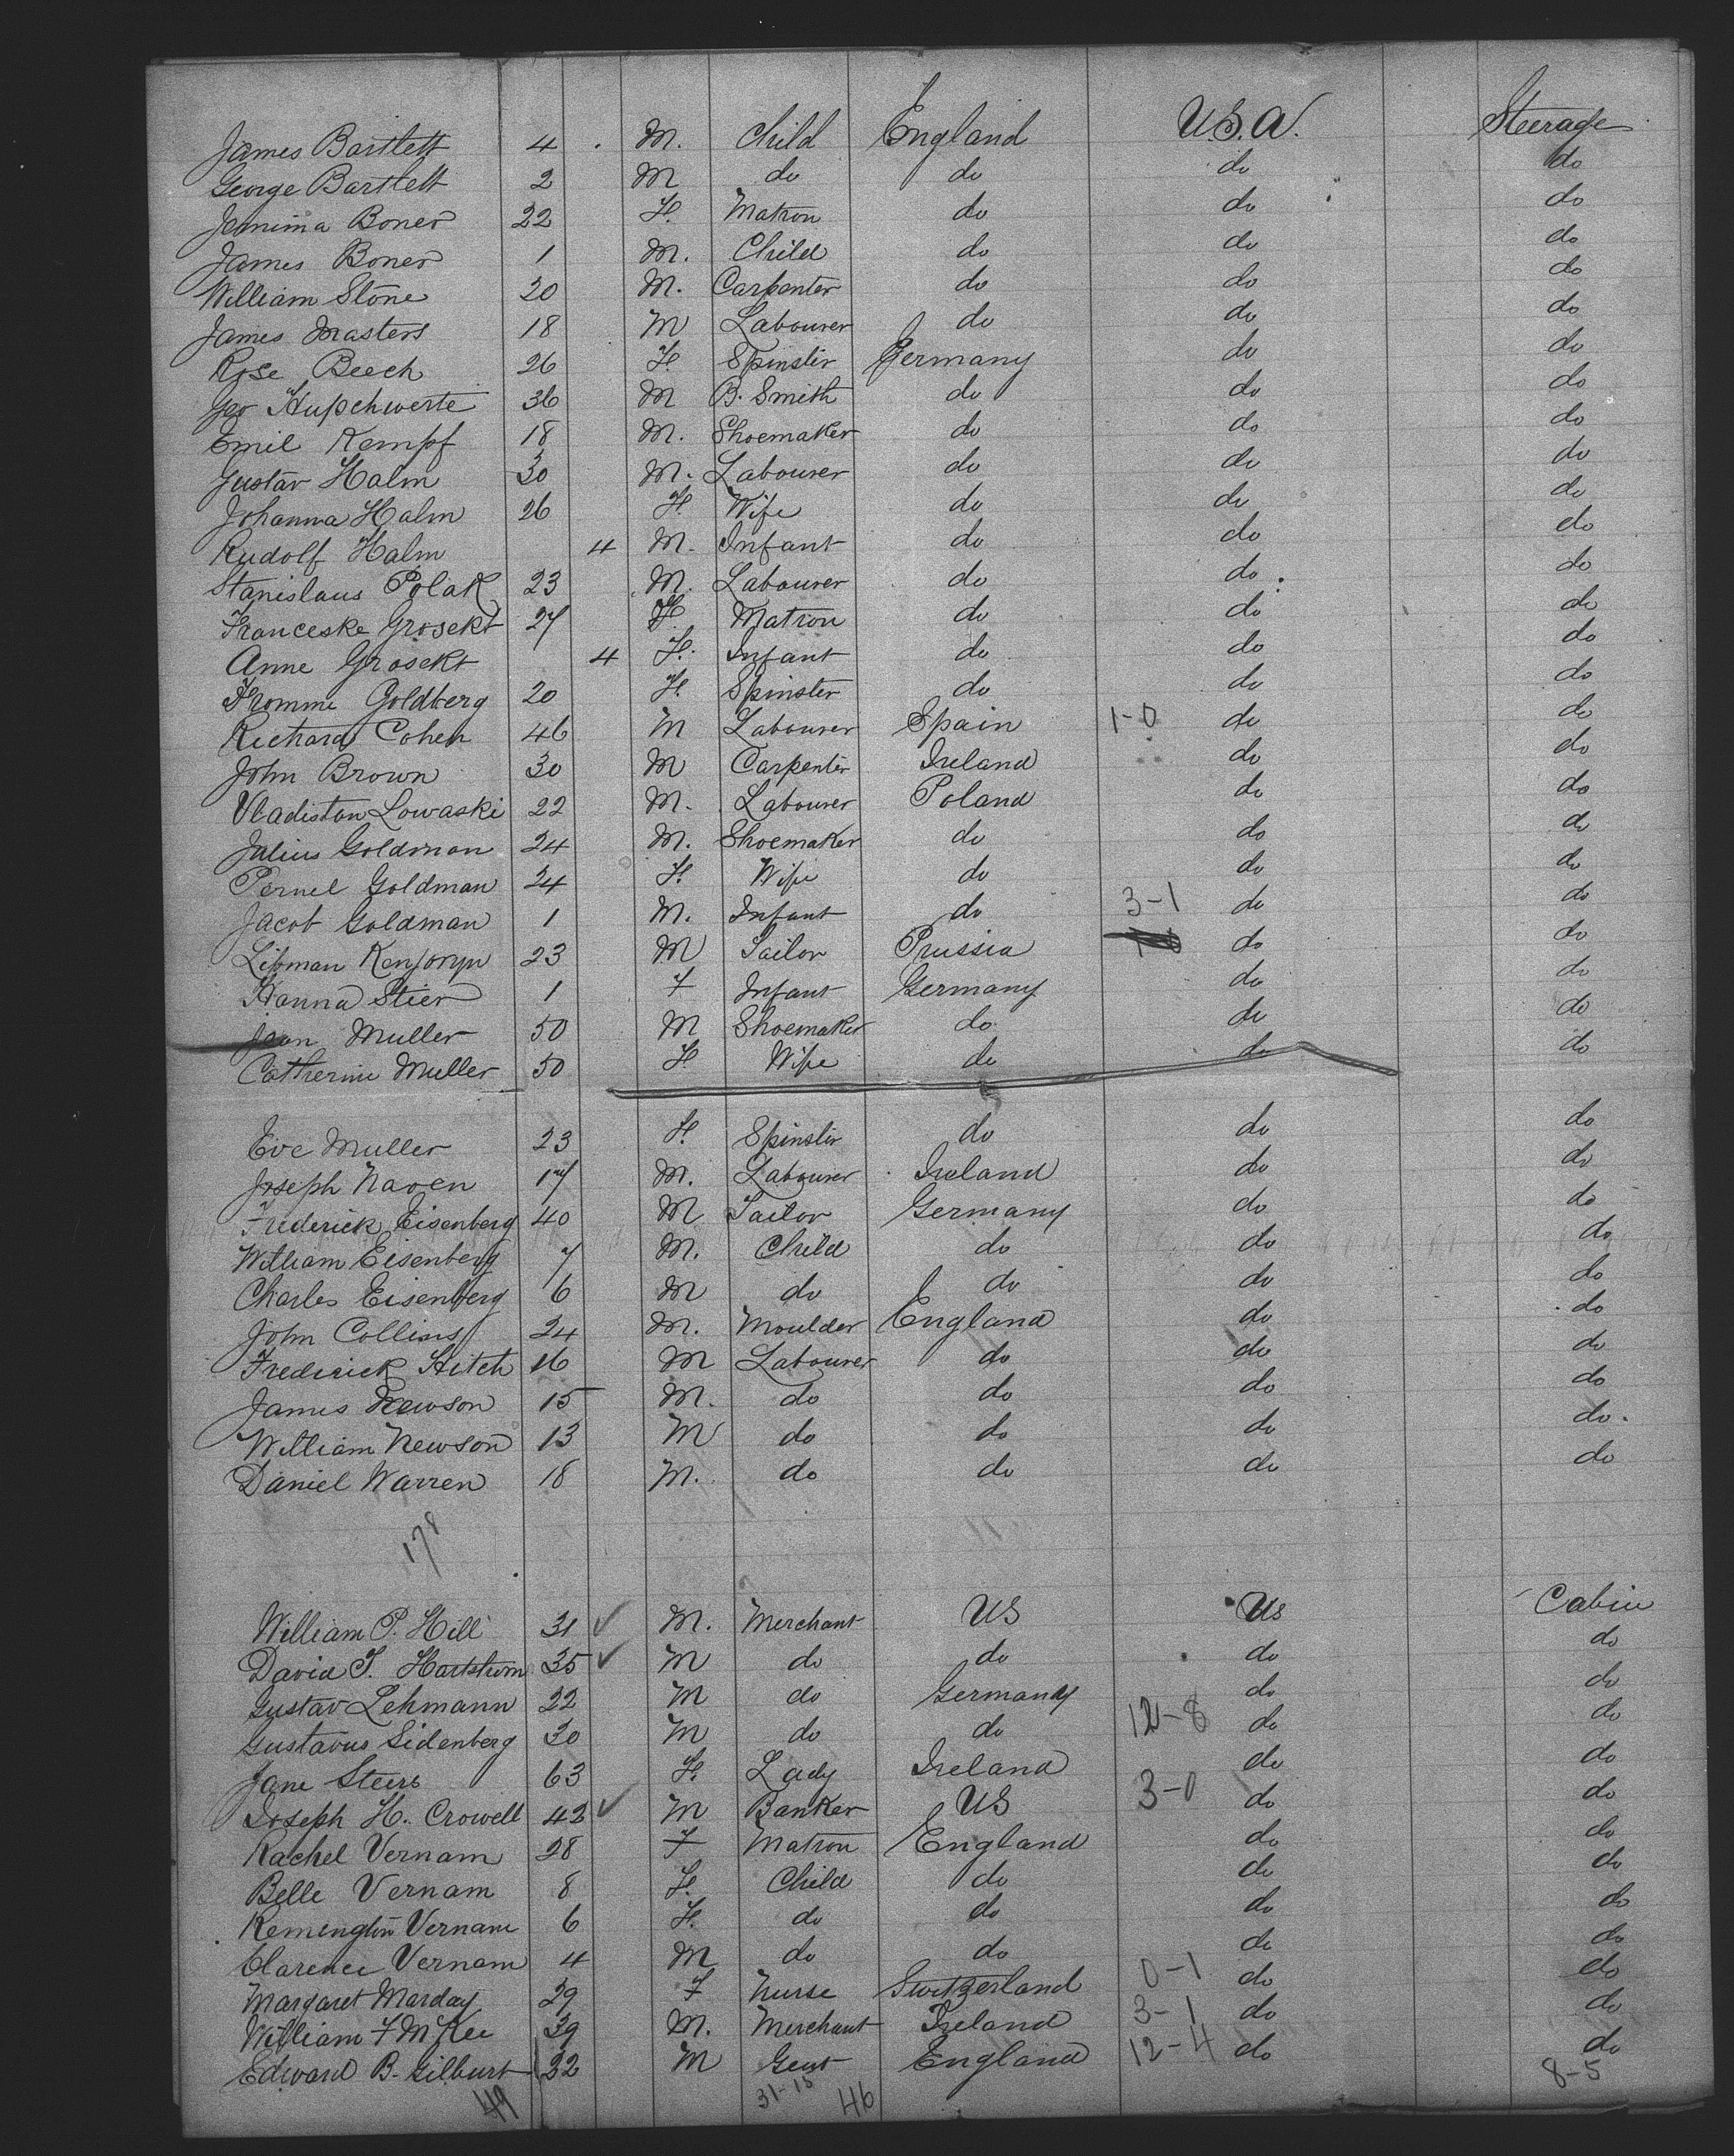 James Bartlett 4 . M. Child England U.S.A. Steerage
George Bartlett 2 M do do do do
Jemima Boner 22 F. Matron do do do
James Boner 1 M. Child do do do
William Stone 20 M. Carpenter do do do
James Masters 18 M Labourer do do do
Rose Beech 26 F. Spinster Germany do do
Geo Hupchwerte 36 M B. Smith do do do
Emil Kempf 18 M. Shoemaker do do do
Gustav Halm 30 M. Labourer do do do
Johanna Halm 26 F. Wife do do do
Rudolf Halm 4 M. Infant do do do
Stanislaus Polak 23 M. Labourer do do do
Franceske Grosekt 27 F. Matron do do do
Anne Grosekt 4 F. Infant do do do
Fromme Goldberg 20 F. Spinster do do do
Richard Cohen 46 M Labourer Spain 1-0 do do
John Brown 30 M Carpenter Ireland do do
Vladiston Lowaski 22 M. Labourer Poland do do
Julius Goldman 24 M. Shoemaker do do do
Pernel Goldman 24 F. Wife do do do
Jacob Goldman 1 M. Infant do 3-1 do do
Libman 23 M Tailor Prussia do do
Hanna Stier 1 F Infant Germany do do
Jean Muller 50 M Shoemaker do do do
Catherine Muller 50 F. Wife do do do
Eve Muller 23 F. Spinster do do do
Joseph Naven 17 M. Labourer Ireland do do
Frederick Eisenberg 40 M Tailor Germany do do
William Eisenberg 7 M. Child do do do
Charles Eisenberg 6 M do do do do
John Collins 24 M. Moulder England do do
Frederick Hitch 16 M Labourer do do do
James Newson 15 M. do do do do
William Newson 13 M do do do do
Daniel Warren 18 M. do do do do
178
William P. Hill 31 ✓ M. Merchant US US Cabin
David T. Hartstrom 35 ✓ M do do do do
Gustav Lehmann 22 M do Germany do do
Gustavus Sidenberg 30 M do do 12-8 do do
Jane Steers 63 F. Lady Ireland do do
Joseph H. Crowell 42 ✓ M Banker US 3-0 do do
Rachel Vernam 28 F Matron England do do
Belle Vernam 8 F. Child do do do
Remington Vernam 6 F. do do do do
Clarence Vernam 4 M do do do do
Margaret Marday 29 F Nurse Switzerland 0-1 do do
William F McKee 39 M. Merchant Ireland 3-1 do do
Edward B. Gilburt 22 M Gent England 12-4 do do
49 31-15 46 8-5